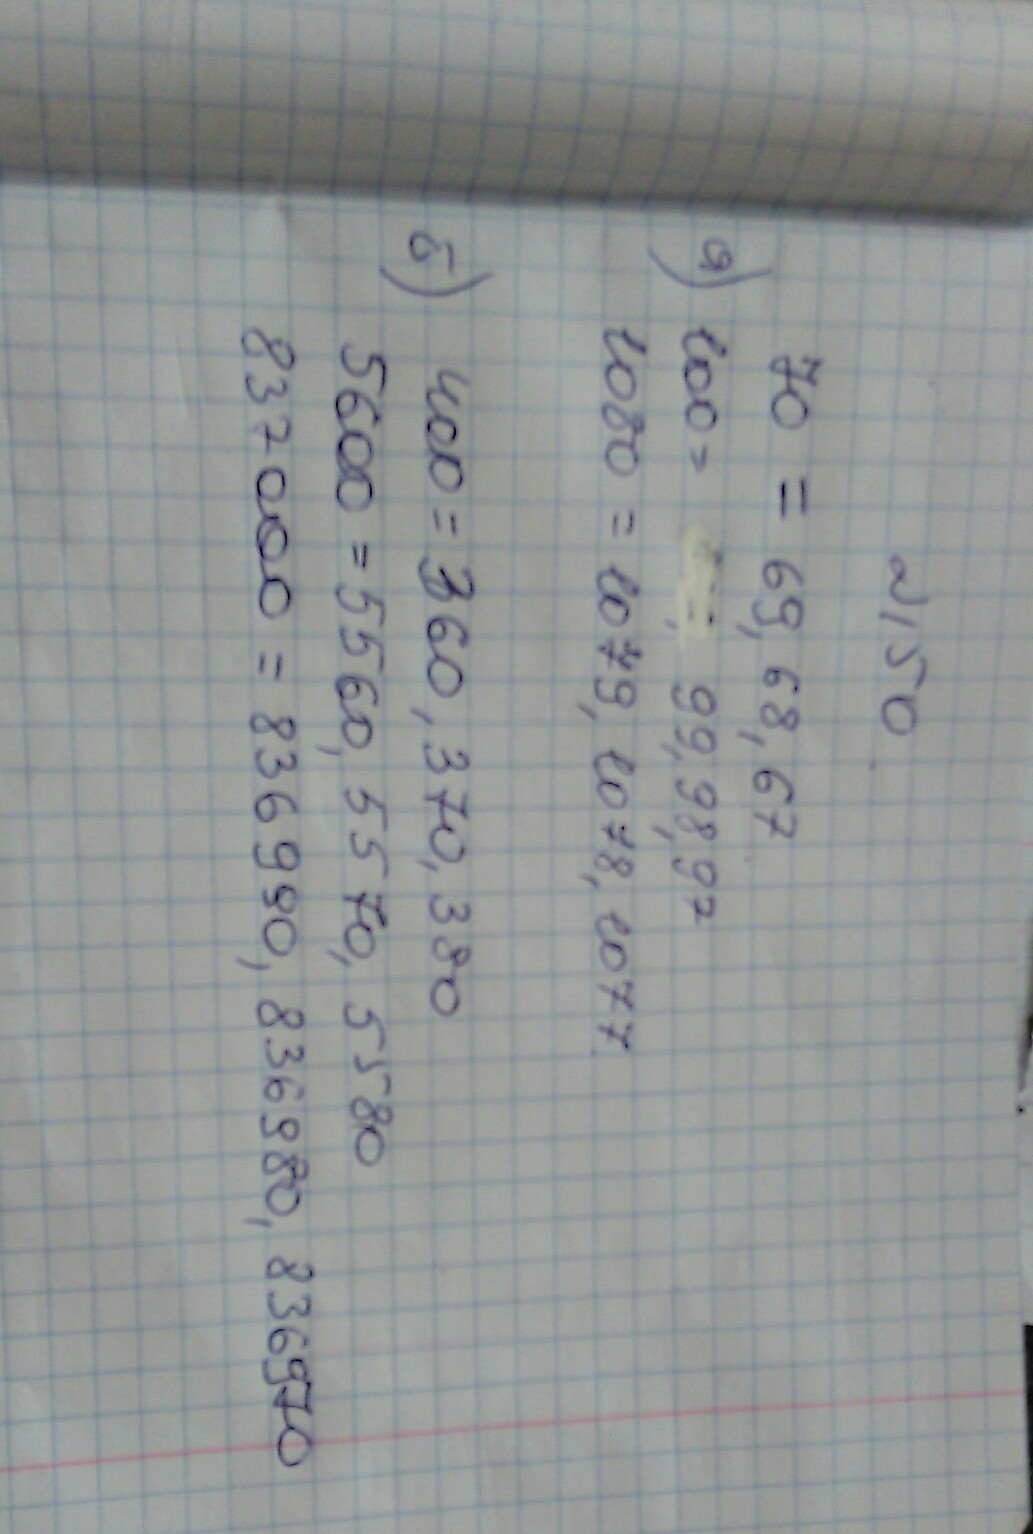 №150
70 = 69, 68, 67
а) 100 = 99, 98, 97
1080 = 1079, 1078, 1077
400 = 360, 370, 380
б) 5600 = 5560, 5570, 5580
837000 = 836990, 836980, 836970